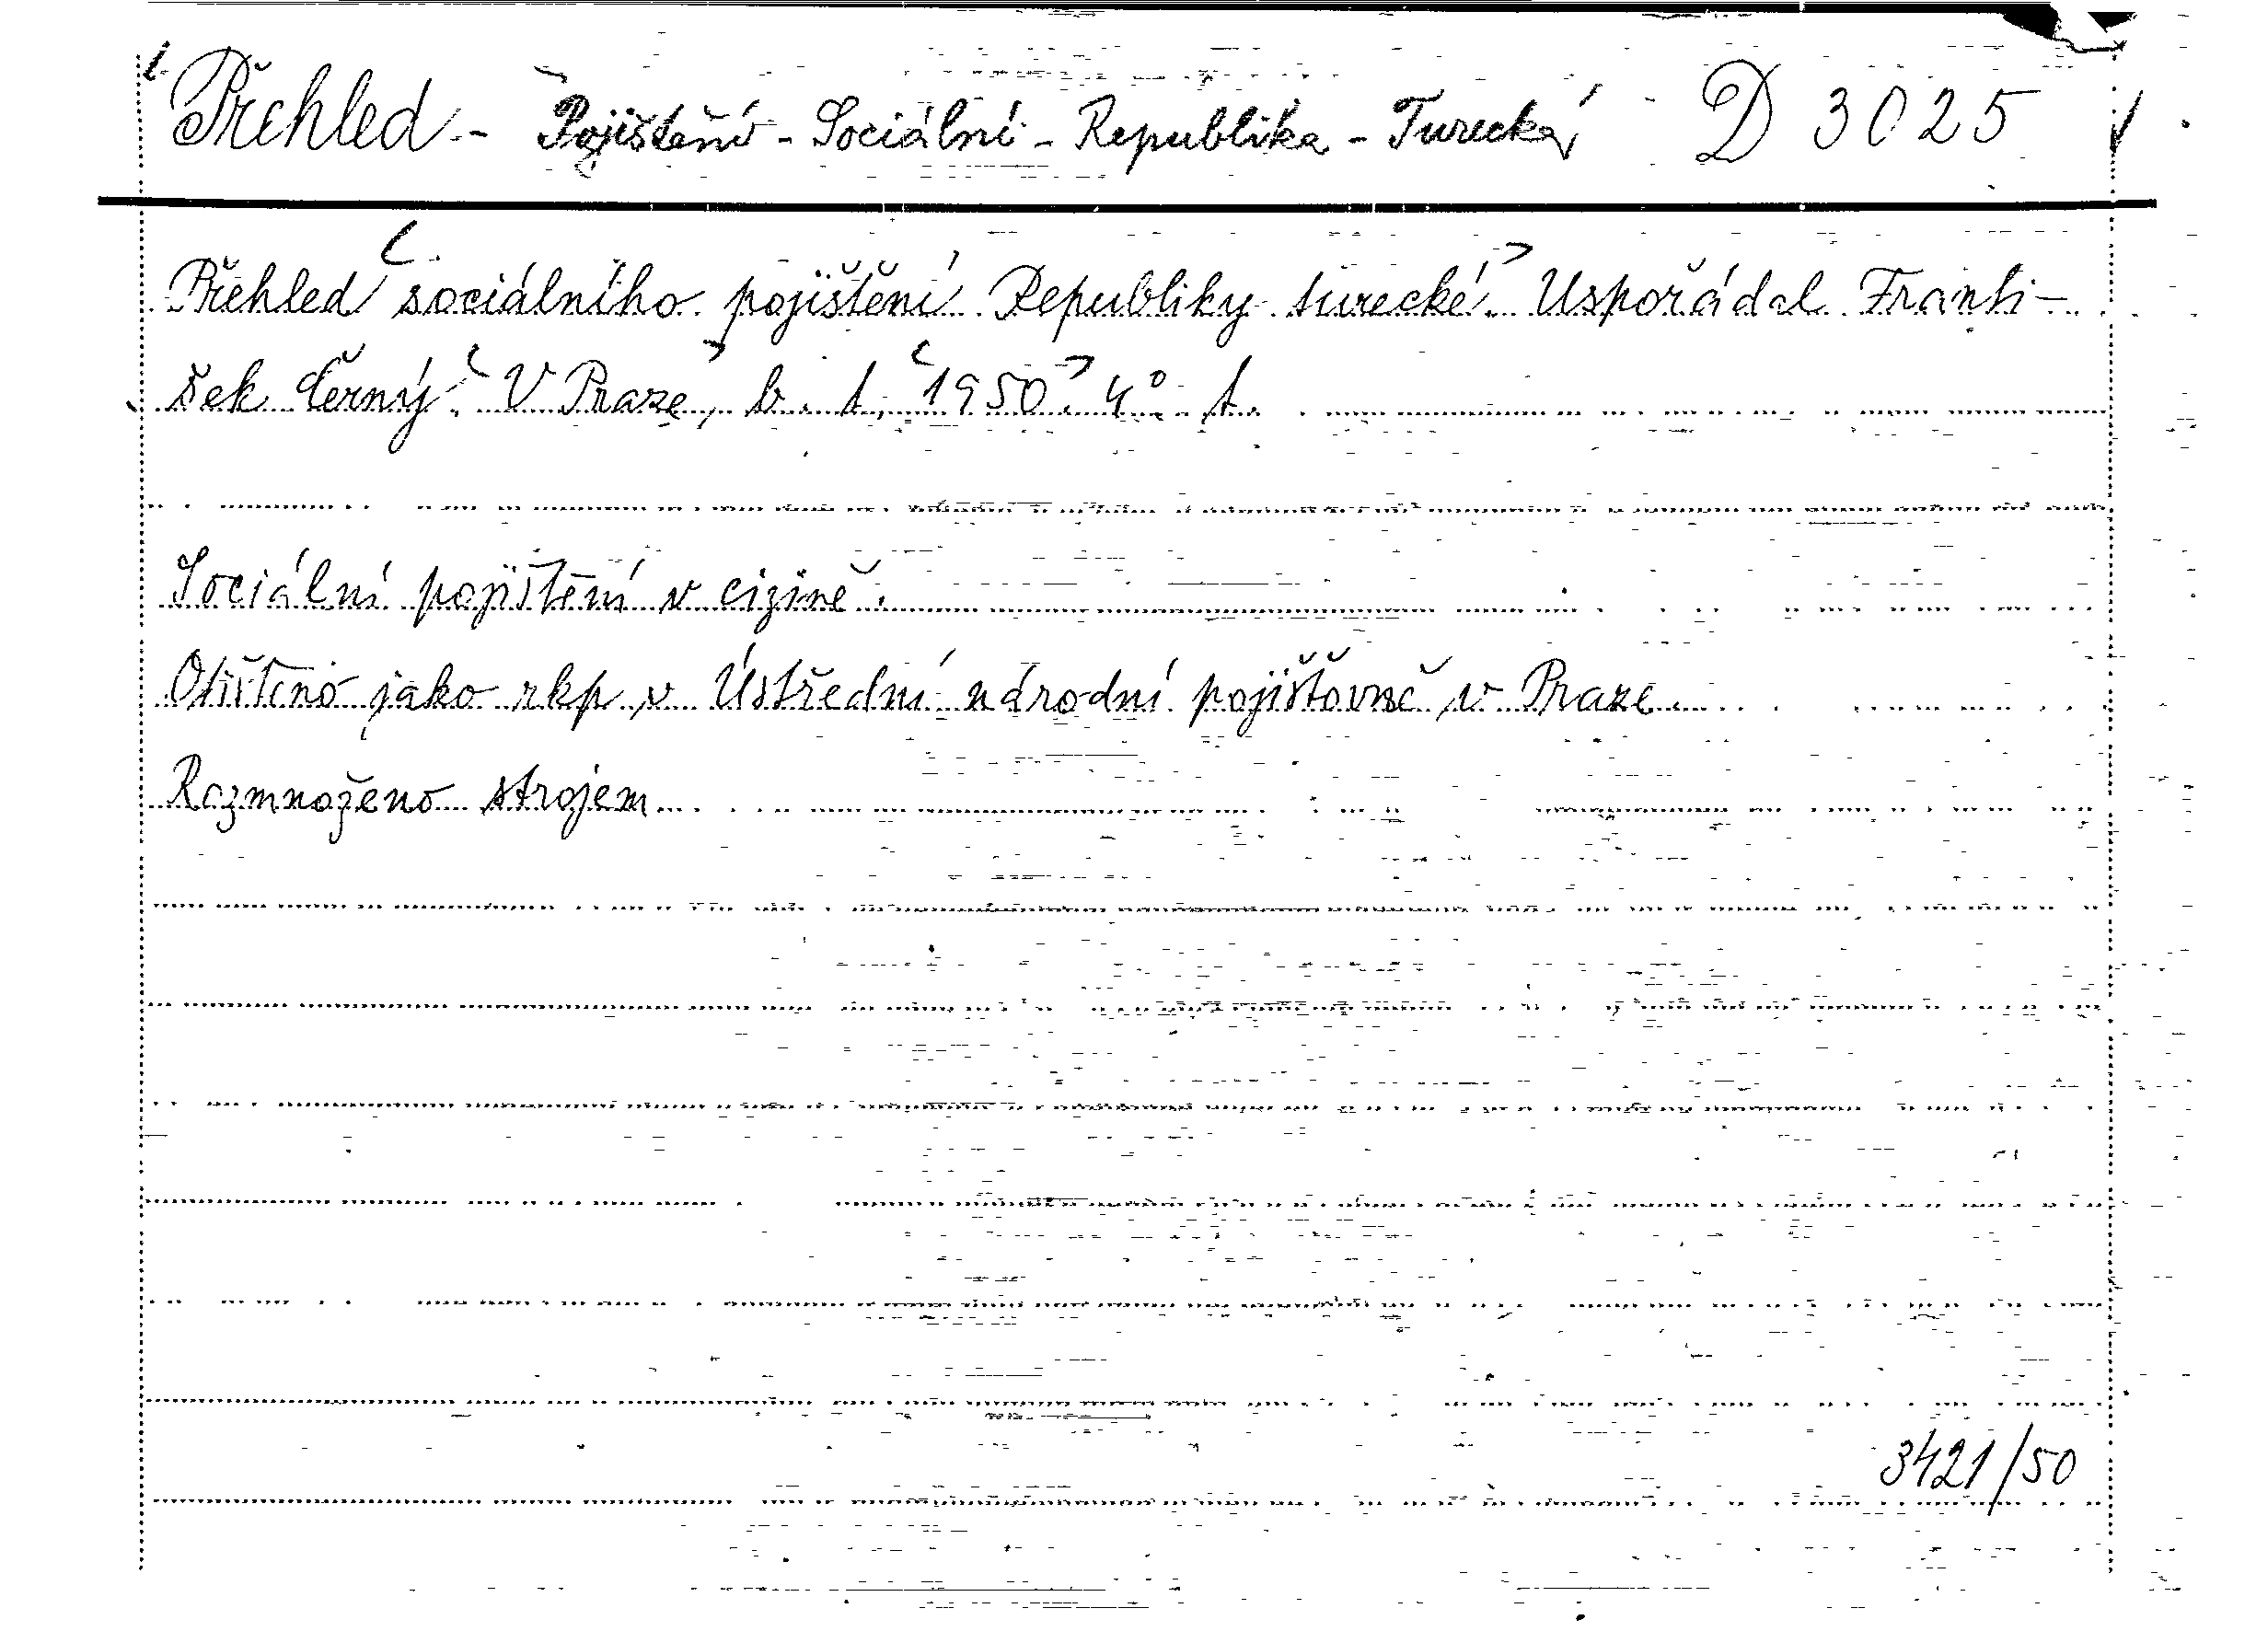 Přehled - Pojištění - Sociální - Republika - Turecká D 3025
Přehled sociálního pojištění Republiky turecké. Uspořádal Franti-
šek Černý. V Praze, b. t., 1950. 4°. t.
Sociální pojištění v cizině.
Otištěno jako rkp v Ústřední národní pojišťovně v Praze.
Rozmnoženo strojem.
3421/50